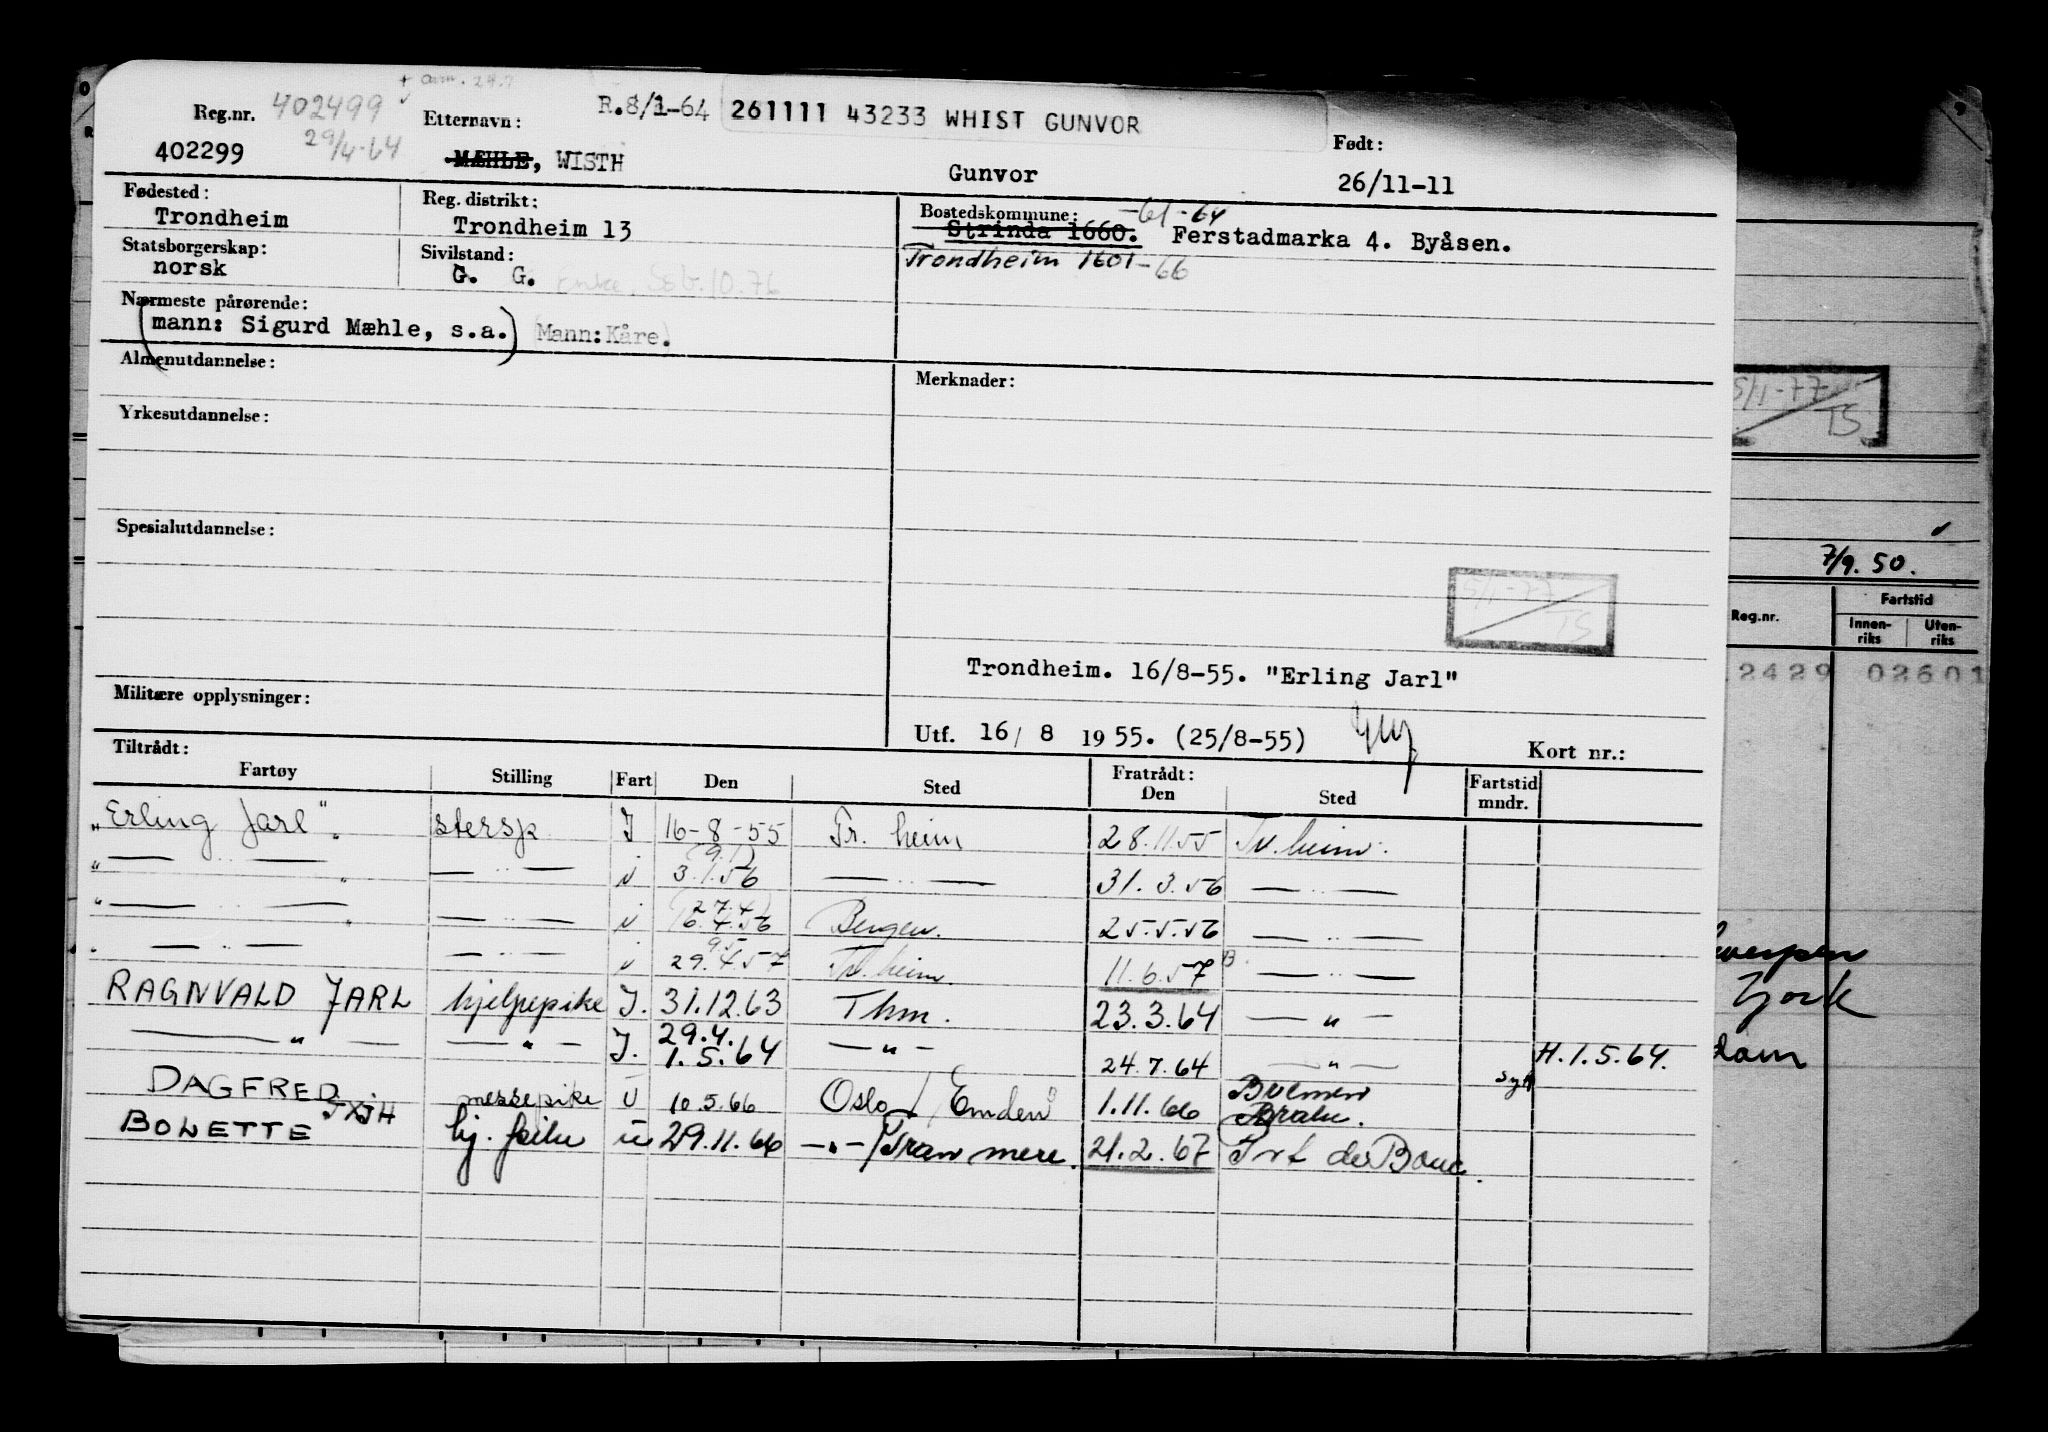 Reg.nr. 402499 Etternavn: R.8/1-64 261111 43233 WHIST GUNVOR Født:
402299 29/4-64 MÆHLE, WISTH Gunvor 26/11-11
Fødested: Reg. distrikt: Bostedskommune: -61-64
Trondheim Trondheim 13 Strinda 1660. Ferstadmarka 4. Byåsen.
Statsborgerskap: Sivilstand: Trondheim 1601-66
norsk G. G. Enke. 10.76
Nærmeste pårørende:
(mann: Sigurd Mæhle, s.a.) (Mann: Kåre.)
Almenutdannelse: Merknader:
Yrkesutdannelse:
Spesialutdannelse:
5/1-77
TS
Trondheim. 16/8-55. "Erling Jarl"
Militære opplysninger:
Utf. 16/ 8 1955. (25/8-55) Kort nr.:
Tiltrådt: Fratrådt:
Fartøy Stilling Fart Den Sted Den Sted Fartstid mndr.
"Erling Jarl". I 16-8-55 Tr.heim 28.11.55 Tr.heim.
" — " — — " — i 3.1.56 — " — 31.3.56 — " —
" — " — — " — i 16.4.56 Bergen. 25.5.56 — " —
" — " — — " — i 29.4.57 Tr.heim. 11.6.57 — " —
RAGNVALD JARL hjelpepike I. 31.12.63 Thm. 23.3.64 — " —
— " — — " — I. 29.4. 1.5.64 — " — 24.7.64 — " — H.1.5.64.
DAGFRED messepike U 10.5.66 Oslo / Emden 1.11.66 Bremen syk
BONETTE JXJH 29.11.66 — " — / 21.2.67
5/1-77
TS
7/9.50.
Reg.nr. Fartstid
Innenriks Utenriks
2429 02601